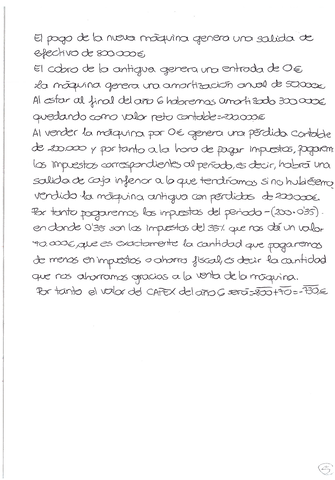 El pago de la nueva máquina genera una salida de
efectivo de 800.000€
El cobro de la antigua genera una entrada de 0€
La máquina genera una amortización anual de 50.000€
Al estar al final del año 6 habremos amortizado 300.000€
quedando como valor neto contable=200.000€
Al vender la máquina por 0€ genera una pérdida contable
de 200.000€ y por tanto a la hora de pagar impuestos, pagaremos
los impuestos correspondientes al período, es decir, habrá una
salida de caja inferior a la que tendríamos si no hubiésemos
vendido la máquina antigua con pérdidas de 200.000€.
Por tanto pagaremos los impuestos del período -(200·0'35).
en donde 0'35 son los impuestos del 35% que nos da un valor
70.000€, que es exactamente la cantidad que pagaremos
de menos en impuestos o ahorro fiscal, es decir la cantidad
que nos ahorramos gracias a la venta de la máquina.
Por tanto el valor del CAPEX del año 6 será=-800+70=-730€